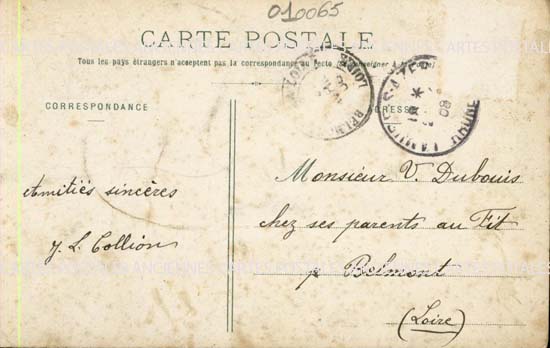 010065
CARTE POSTALE
Tous les pays étrangers n'acceptent pas la correspondance au recto (se renseigner à la
CORRESPONDANCE
ADRESSE
LOIRE
08
Amitiés sincères
J. L. Collion
Monsieur V. Dubouis
chez ses parents au Fit
p Belmont
(Loire)